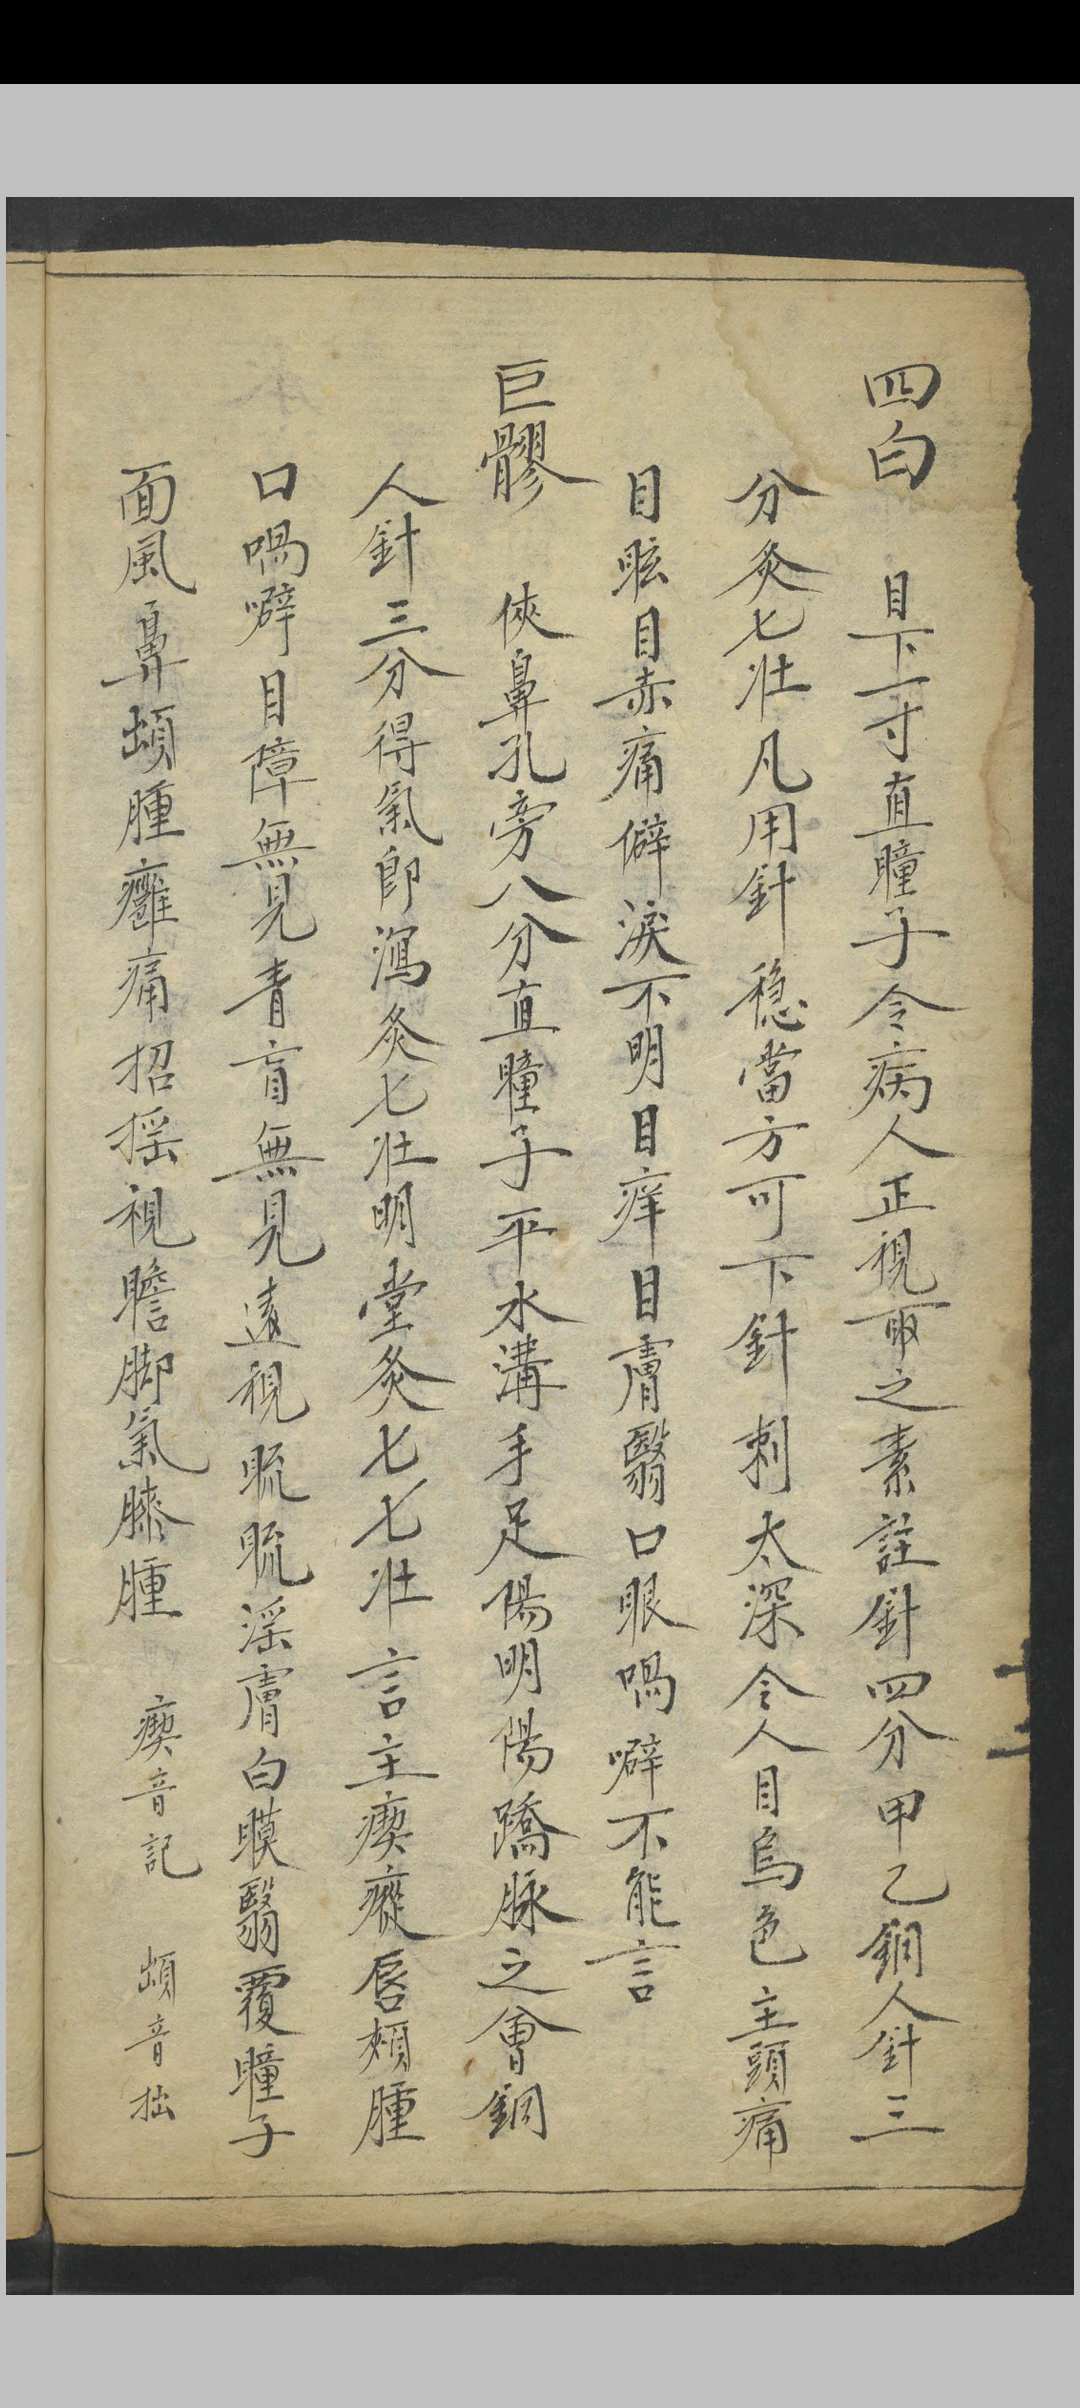 四白 目下一寸直瞳子令病人正視取之素註針四分甲乙銅人針三
分灸七壯凡用針穩當方可下針刺太深令人目烏色主頭痛
目眩目赤痛僻淚不明目痒目膚翳口眼喎噼不能言
巨髎 俠鼻孔旁八分直瞳子平水溝手足陽明陽蹻脉之會銅
人針三分得氣即瀉灸七壯明堂灸七七壯言主瘈瘲唇頰腫
口喎噼目障無見青盲無見遠視䀮䀮淫膚白膜翳覆瞳子
面風鼻䪼腫癰痛招揺視瞻脚氣膝腫 瘈音記 䪼音拙